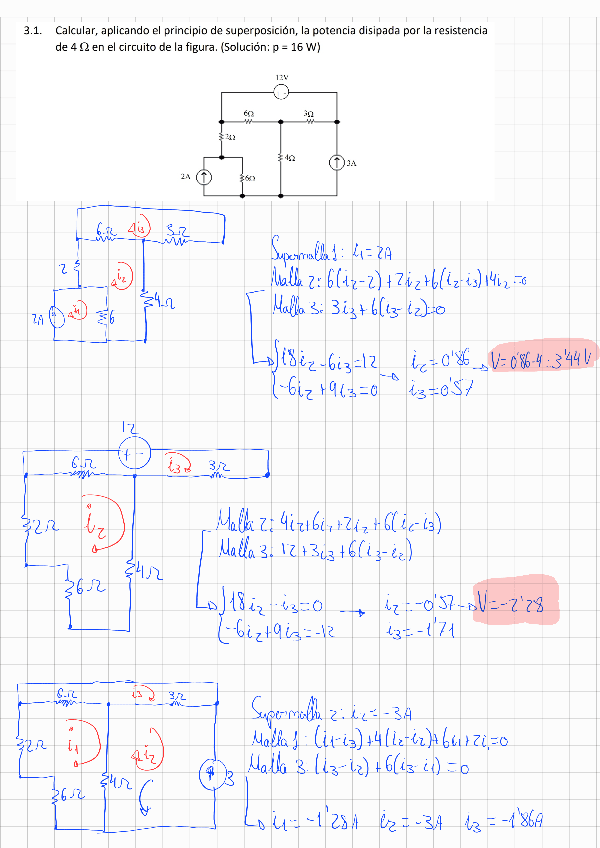 3.1. Calcular, aplicando el principio de superposición, la potencia disipada por la resistencia
de 4 Ω en el circuito de la figura. (Solución: p = 16 W)
12V
6Ω 3Ω
2Ω
4Ω
2A 6Ω 3A
6Ω i3 3Ω
2 i2
2A i1 6 4Ω
Supermalla 1: i1=2A
Malla 2: 6(i2-2)+2i2+6(i2-i3)+4i2=0
Malla 3: 3i3+6(i3-i2)=0
18i2-6i3=12 i2=0'86 V=0'86·4=3'44V
-6i2+9i3=0 i3=0'57
12
+ -
6Ω i3 3Ω
2Ω i2
6Ω 4Ω
Malla 2: 4i2+6i2+2i2+6(i2-i3)
Malla 3: 12+3i3+6(i3-i2)
18i2-i3=0 i2=-0'57 V=-2'28
-6i2+9i3=-12 i3=-1'71
6Ω i3 3Ω
2Ω i1 i2
6Ω 4Ω 3
Supermalla 2: i2=-3A
Malla 1: (i1-i3)+4(i2-i2)+6i1+2i1=0
Malla 3: (i3-i2)+6(i3-i1)=0
i1=-1'28A i2=-3A i3=-1'86A